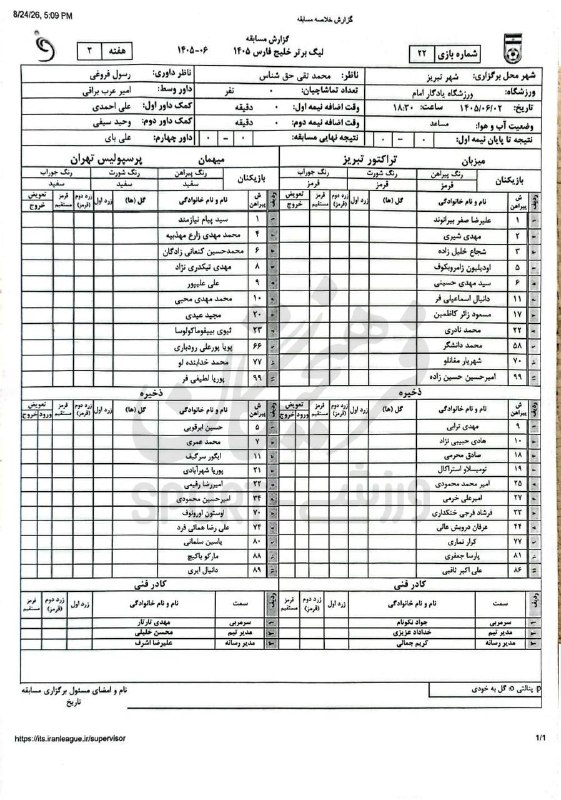 8/24/26, 5:09 PM
گزارش خلاصه مسابقه
گزارش مسابقه
لیگ برتر خلیج فارس ۱۴۰۵
۱۴۰۵-۰۶
هفته ۳
شماره بازی ۲۲
شهر محل برگزاری: شهر تبریز
ناظر: محمد تقی حق شناس
ناظر داوری: رسول فروغی
ورزشگاه: ورزشگاه یادگار امام
تعداد تماشاچیان: ۰ نفر
داور وسط: امیر عرب براقی
تاریخ: ۱۴۰۵/۰۶/۰۲ ساعت: ۱۸:۳۰
وقت اضافه نیمه اول: ۰ دقیقه
کمک داور اول: علی احمدی
وضعیت آب و هوا: مساعد
وقت اضافه نیمه دوم: ۰ دقیقه
کمک داور دوم: وحید سیفی
نتیجه تا پایان نیمه اول: ۰ - ۰
نتیجه نهایی مسابقه: ۰ - ۰
داور چهارم: علی بای
میزبان تراکتور تبریز
بازیکنان رنگ پیراهن رنگ شورت رنگ جوراب
قرمز قرمز قرمز
ردیف ش پیراهن نام و نام خانوادگی گل (ها) زرد اول زرد دوم (قرمز) قرمز مستقیم تعویض خروج
۱ علیرضا صفر بیرانوند
۲ مهدی شیری
۳ شجاع خلیل زاده
۵ اودیلیون زامروبکوف
۶ سید مهدی حسینی
۱۱ دانیال اسماعیلی فر
۱۷ مسعود زائر کاظمین
۲۲ محمد نادری
۵۸ محمد دانشگر
۷۰ شهریار مغانلو
۹۹ امیرحسین حسین زاده
ذخیره
ردیف ش پیراهن نام و نام خانوادگی گل (ها) زرد اول زرد دوم (قرمز) قرمز مستقیم تعویض ورود خروج
۹ مهدی ترابی
۱۰ هادی حبیبی نژاد
۱۸ صادق محرمی
۱۹ تومیسلاو استراکال
۲۵ امیر محمد محمودی
۲۷ امیرعلی خرمی
۳۳ فرشاد فرجی
۴۴ عرفان درویش عالی
۷۷ کرار نماری
۸۱ پارسا جعفری
۸۶ علی اکبر ثاقبی
کادر فنی
ردیف سمت نام و نام خانوادگی زرد اول زرد دوم (قرمز) قرمز مستقیم
۱ سرمربی جواد نکونام
۲ مدیر تیم خداداد عزیزی
۳ مدیر رسانه کریم جمالی
میهمان پرسپولیس تهران
بازیکنان رنگ پیراهن رنگ شورت رنگ جوراب
سفید سفید سفید
ش پیراهن نام و نام خانوادگی گل (ها) زرد اول زرد دوم (قرمز) قرمز مستقیم تعویض خروج
۱ سید پیام نیازمند
۴ محمد مهدی زارع مهذبیه
۶ محمدحسین کنعانی زادگان
۸ مهدی تیکدری نژاد
۹ علی علیپور
۱۰ محمد مهدی محبی
۲۰ مجید عیدی
۲۳ تیوی بیفوماکولوسا
۶۶ پویا پورعلی رودباری
۷۷ محمد خدابنده لو
۹۹ پوریا لطیفی فر
ذخیره
ش پیراهن نام و نام خانوادگی گل (ها) زرد اول زرد دوم (قرمز) قرمز مستقیم تعویض ورود خروج
۵ حسین ابرقویی
۷ محمد عمری
۱۱ ایگور سرگیف
۲۱ پوریا شهرآبادی
۲۲ امیررضا رفیعی
۳۴ امیرحسین محمودی
۷۰ اوستون اورونوف
۷۲ علی رضا همائی فرد
۸۰ یاسین سلمانی
۸۸ مارکو باکیچ
۸۹ دانیال ایری
کادر فنی
ردیف سمت نام و نام خانوادگی زرد اول زرد دوم (قرمز) قرمز مستقیم
۱ سرمربی مهدی تارتار
۲ مدیر تیم محسن خلیلی
۳ مدیر رسانه علیرضا اشرف
p: پنالتی o: گل به خودی
نام و امضای مسئول برگزاری مسابقه
تاریخ
https://its.iranleague.ir/supervisor
1/1
فرهیختگان
ورزشی
SPORT